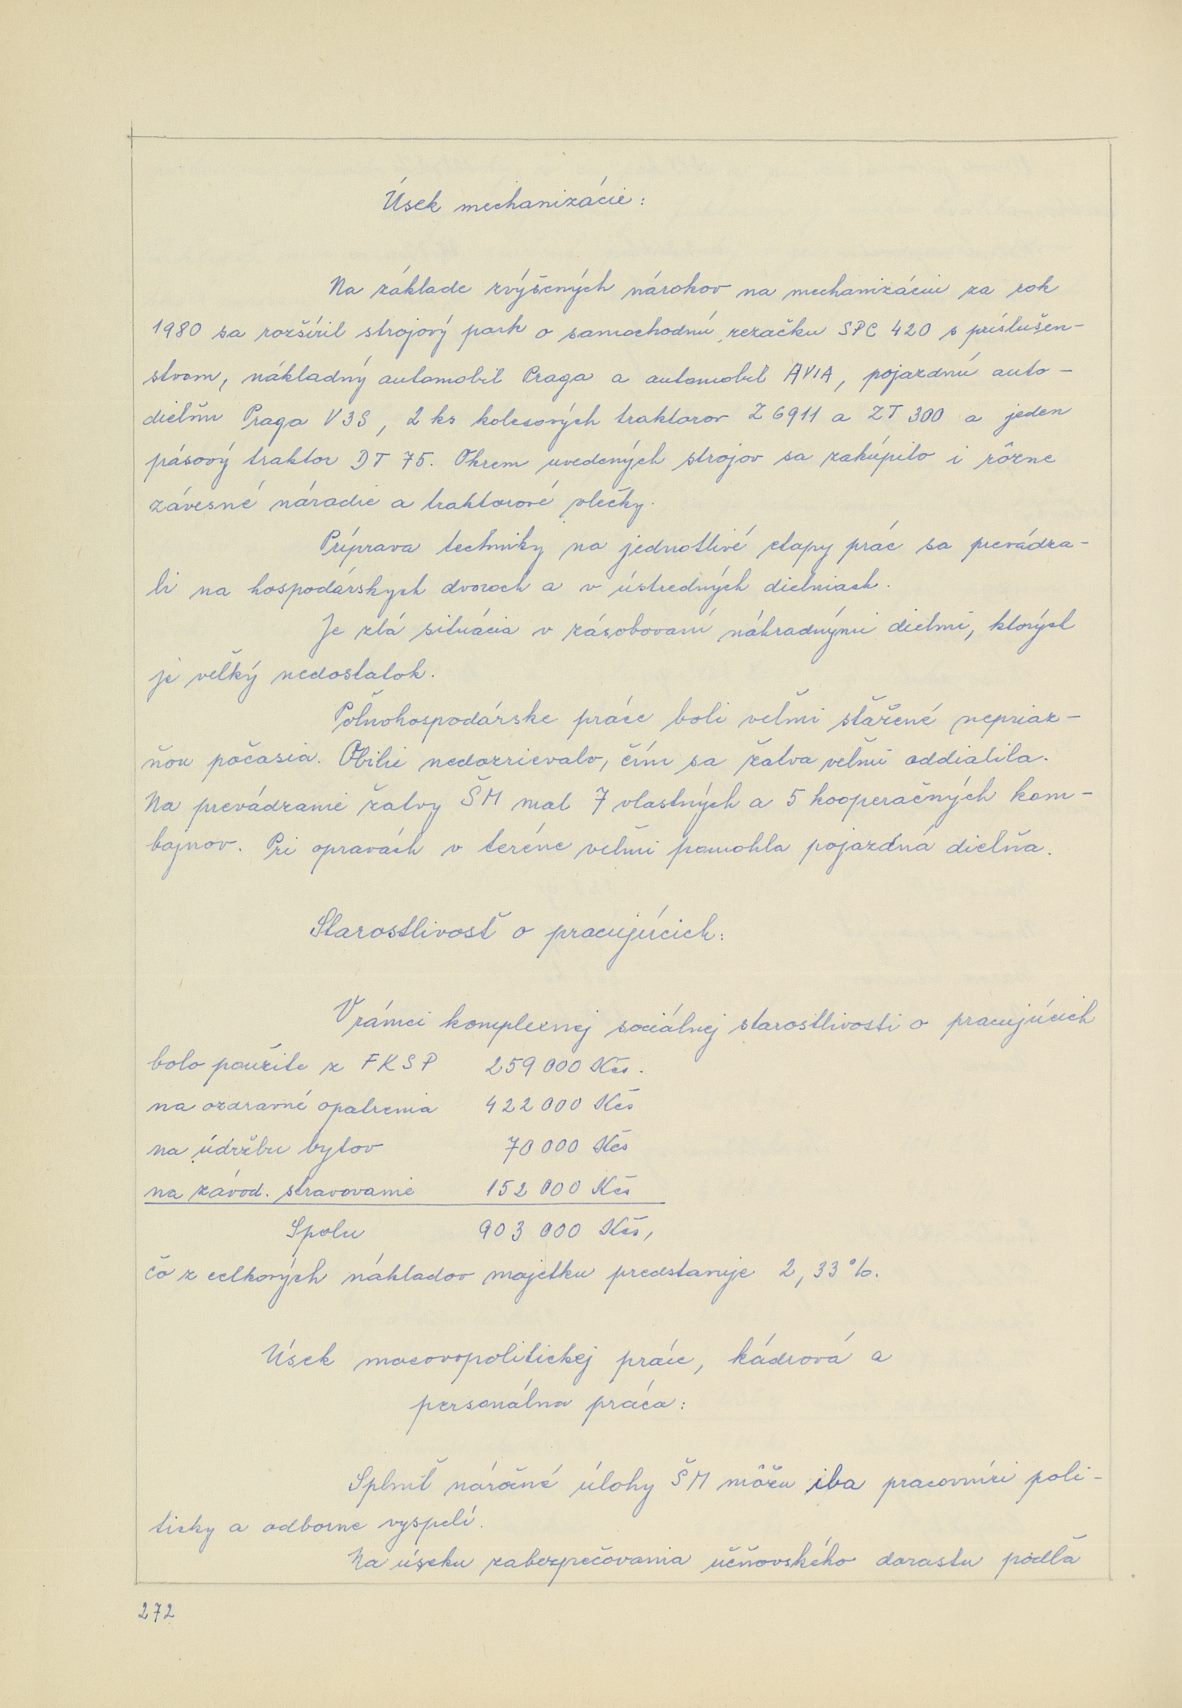 Úsek mechanizácie:
Na základe zvýšených nárokov na mechanizáciu za rok
1980 sa rozšíril strojový park o samochodnú rezačku SPC 420 s príslušen-
stvom, nákladný automobil Praga a automobil AVIA, pojazdnú auto-
dielňu Praga V3S, 2 ks kolesových traktorov Z 6911 a ZT 300 a jeden
pásový traktor DT 75. Okrem uvedených strojov sa zakúpilo i rôzne
závesné náradie a traktorové vlečky.
Príprava techniky na jednotlivé etapy prác sa prevádza-
li na hospodárskych dvoroch a v ústredných dielniach.
Je zlá situácia v zásobovaní náhradnými dielmi, ktorých
je veľký nedostatok.
Poľnohospodárske práce boli veľmi sťažené nepriaz-
ňou počasia. Obilie nedozrievalo, čím sa žatva veľmi oddialila.
Na prevádzanie žatvy ŠM mal 7 vlastných a 5 kooperačných kom-
bajnov. Pri opravách v teréne veľmi pomohla pojazdná dielňa.
Starostlivosť o pracujúcich:
V rámci komplexnej sociálnej starostlivosti o pracujúcich
bolo použite z FKSP 259 000 Kčs.
na ozdravné opatrenia 422 000 Kčs
na údržbu bytov 70 000 Kčs
na závod. stravovanie 152 000 Kčs
Spolu 903 000 Kčs,
čo z celkových nákladov majetku predstavuje 2,33 %.
Úsek masovopolitickej práce, kádrová a
personálna práca:
Splniť náročné úlohy ŠM môžu iba pracovníci poli-
ticky a odborne vyspelí.
Na úseku zabezpečovania učňovského dorastu podľa
272